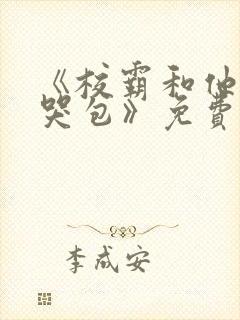 《校霸和他
哭包》免費
李成安